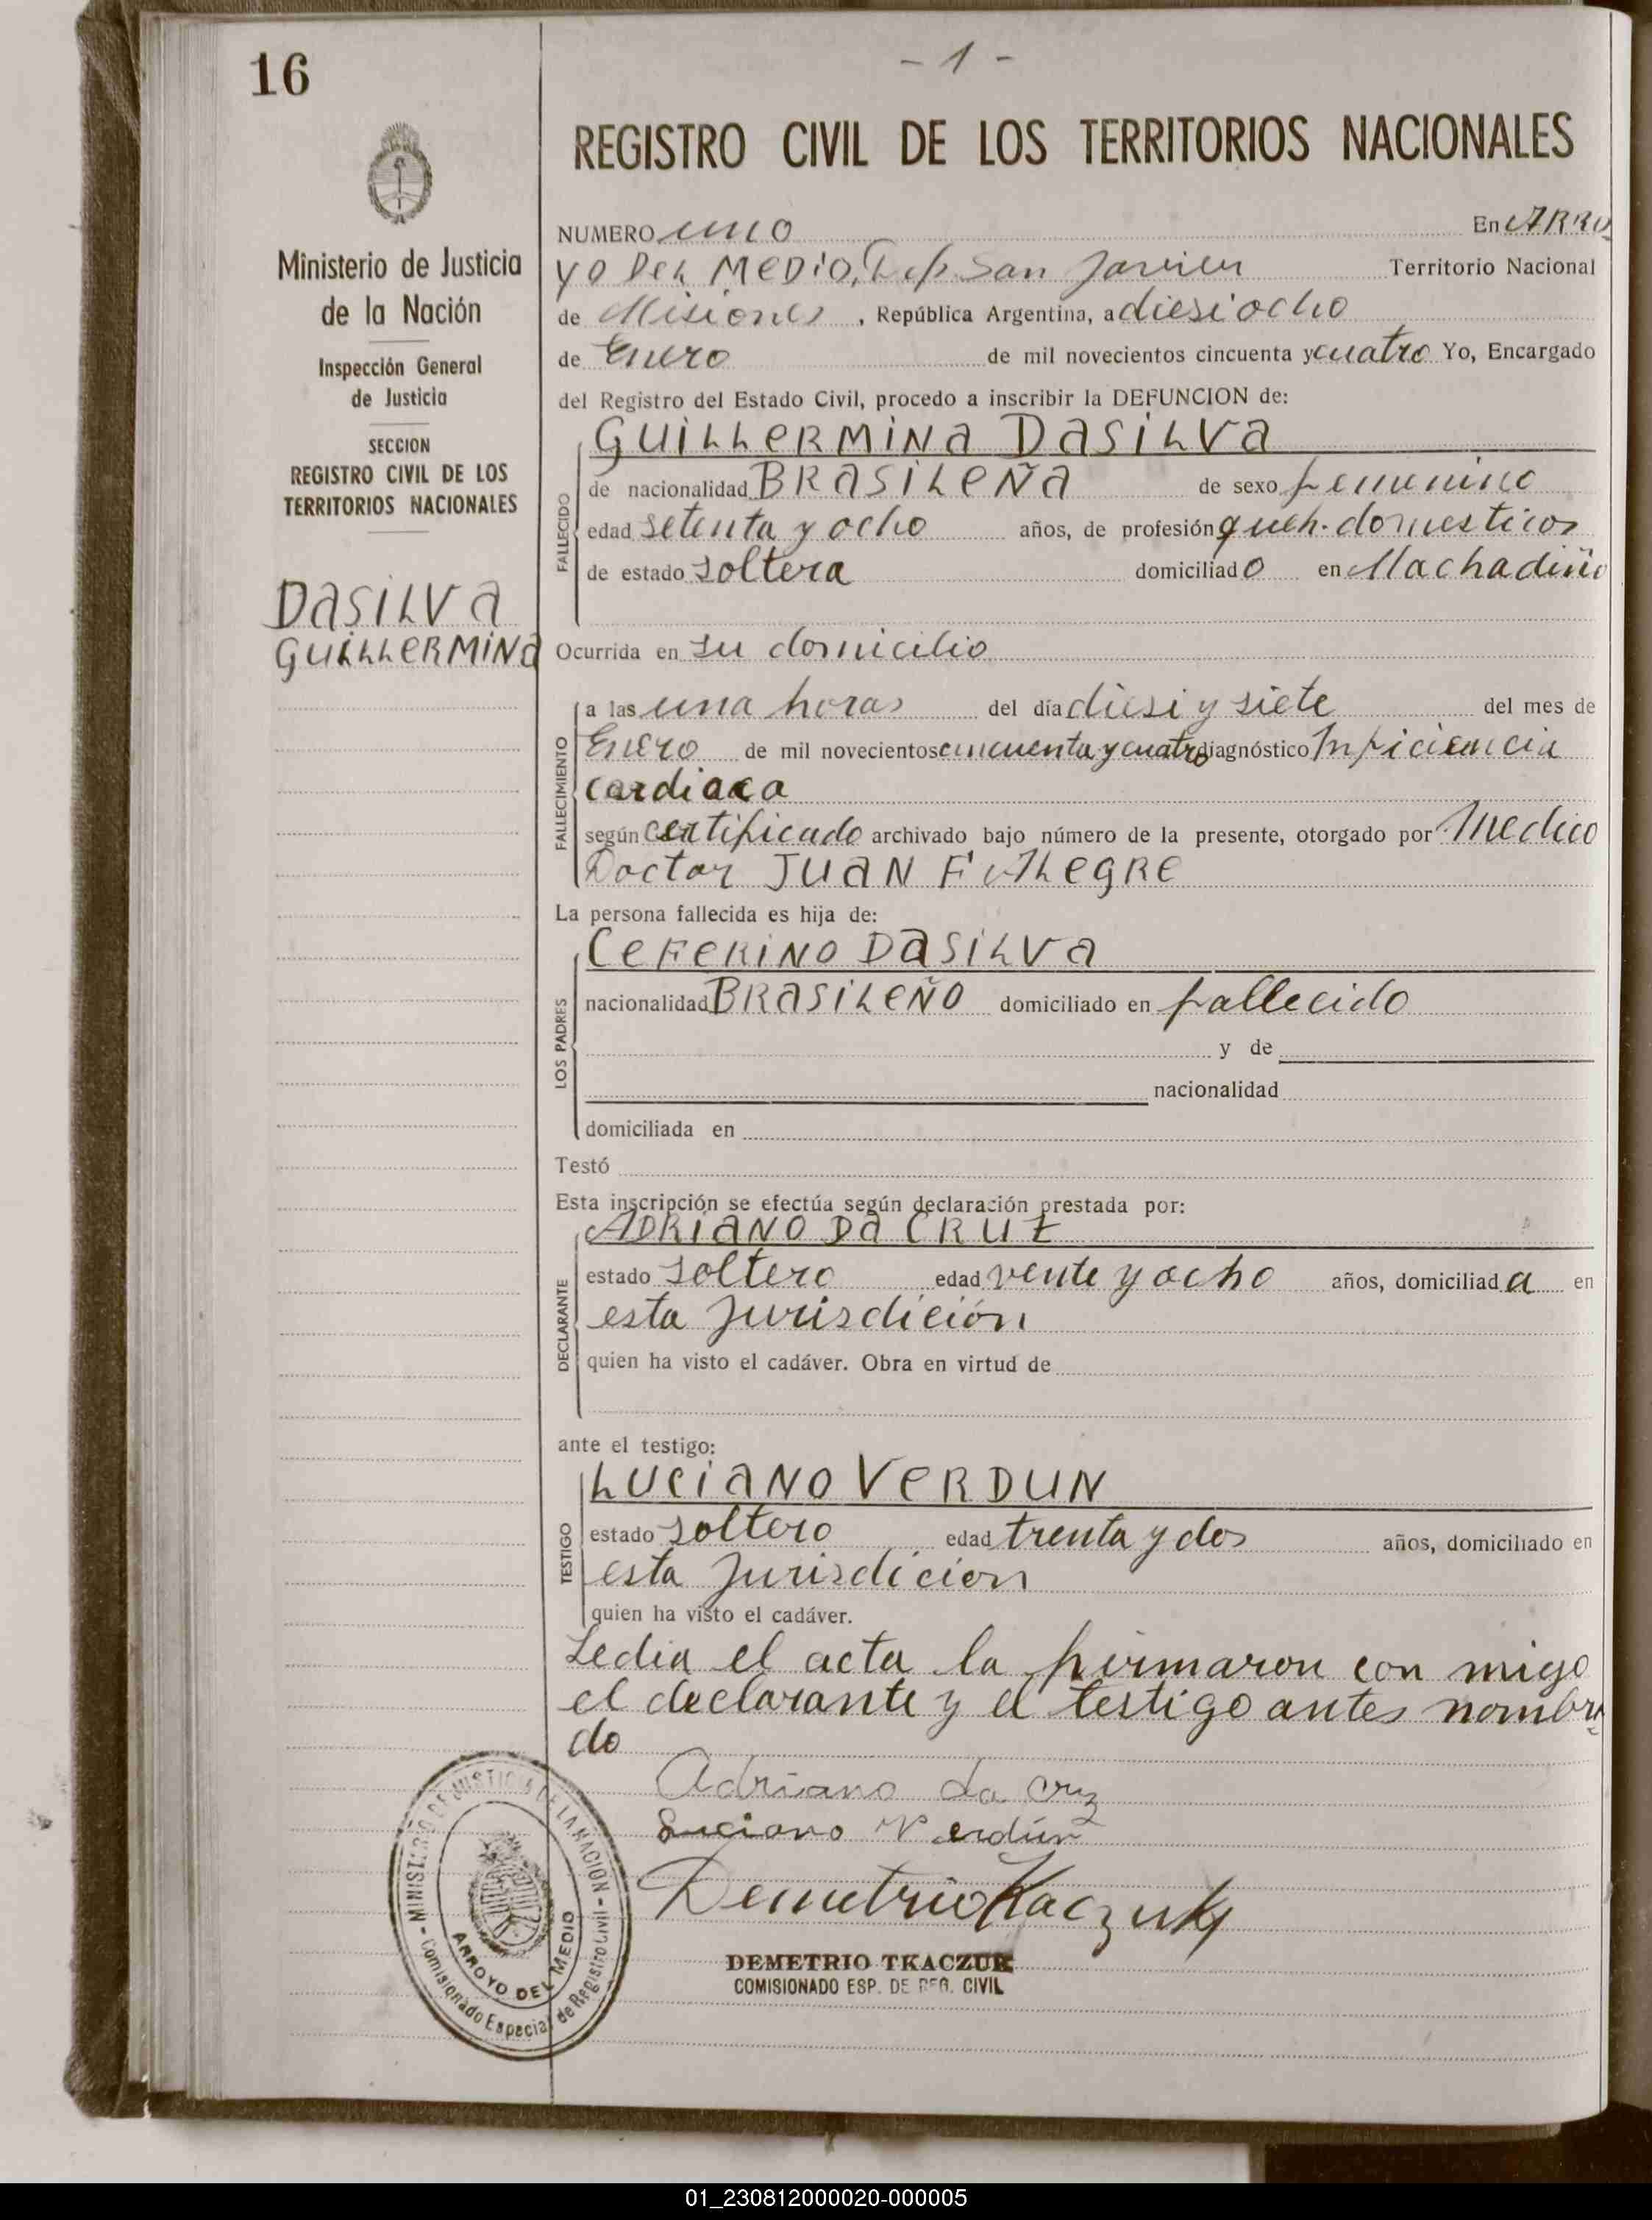 16
- 1 -
Ministerio de Justicia
de la Nación
Inspección General
de Justicia
SECCION
REGISTRO CIVIL DE LOS
TERRITORIOS NACIONALES
DASILVA
GUILLERMINA
REGISTRO CIVIL DE LOS TERRITORIOS NACIONALES
NUMERO uno En ARRO
YO DEL MEDIO, Dep San Javier Territorio Nacional
de Misiones, República Argentina, a diesiocho
de Enero de mil novecientos cincuenta y cuatro Yo, Encargado
del Registro del Estado Civil, procedo a inscribir la DEFUNCION de:
FALLECIDO
GUILLERMINA DASILVA
de nacionalidad BRASILEÑA de sexo femenino
edad setenta y ocho años, de profesión queh. domesticos
de estado soltera domiciliado en Machadiño
Ocurrida en su domicilio
FALLECIMIENTO
a las una horas del día diesi y siete del mes de
Enero de mil novecientos cincuenta y cuatro diagnóstico Inficiencia
cardiaca
según certificado archivado bajo número de la presente, otorgado por Medico
Doctor JUAN F. ALEGRE
La persona fallecida es hija de:
LOS PADRES
CEFERINO DASILVA
nacionalidad BRASILEÑO domiciliado en fallecido
y de
nacionalidad
domiciliada en
Testó
Esta inscripción se efectúa según declaración prestada por:
DECLARANTE
ADRIANO DA CRUZ
estado soltero edad vente y ocho años, domiciliada en
esta jurisdición
quien ha visto el cadáver. Obra en virtud de
ante el testigo:
TESTIGO
LUCIANO VERDUN
estado soltero edad trenta y dos años, domiciliado en
esta jurisdicion
quien ha visto el cadáver.
Ledia el acta la firmaron con migo
el declarante y el testigo antes nombra
do
Adriano da cruz
Luciano Verdún
Demetrio Tkaczuk
DEMETRIO TKACZUK
COMISIONADO ESP. DE REG. CIVIL
- MINISTERIO DE JUSTICIA DE LA NACION -
Comisionado Especial de Registro Civil
ARROYO DEL MEDIO
01_230812000020-000005